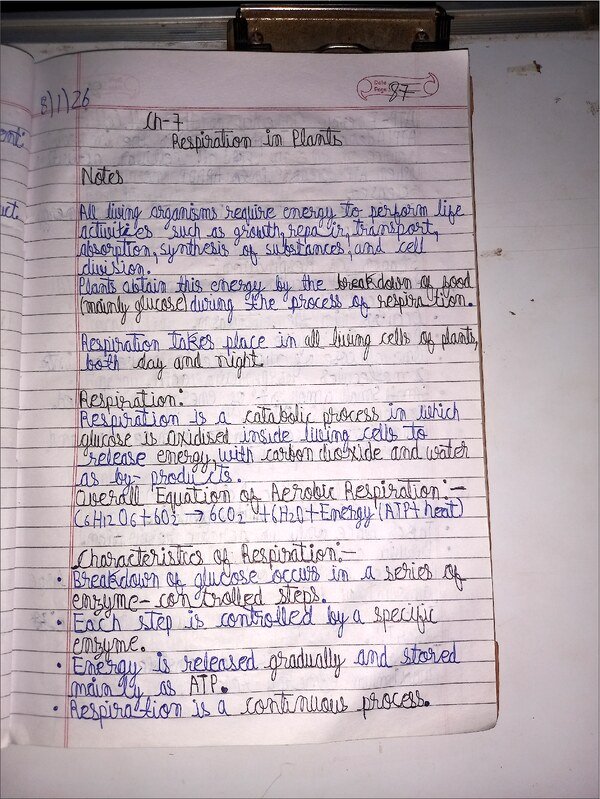 8/1/26
Date
Page 87
Ch-7
Respiration in Plants
Notes
All living organisms require energy to perform life
activities such as growth, repair, transport,
absorption, synthesis of substances, and cell
division.
Plants obtain this energy by the breakdown of food
(mainly glucose) during the process of respiration.
Respiration takes place in all living cells of plants,
both day and night.
Respiration:
Respiration is a catabolic process in which
glucose is oxidised inside living cells to
release energy, with carbon dioxide and water
as by-products.
Overall Equation of Aerobic Respiration:-
C6H12O6+6O2 → 6CO2 +6H2O+Energy (ATP+heat)
Characteristics of Respiration:-
• Breakdown of glucose occurs in a series of
enzyme-controlled steps.
• Each step is controlled by a specific
enzyme.
• Energy is released gradually and stored
mainly as ATP.
• Respiration is a continuous process.